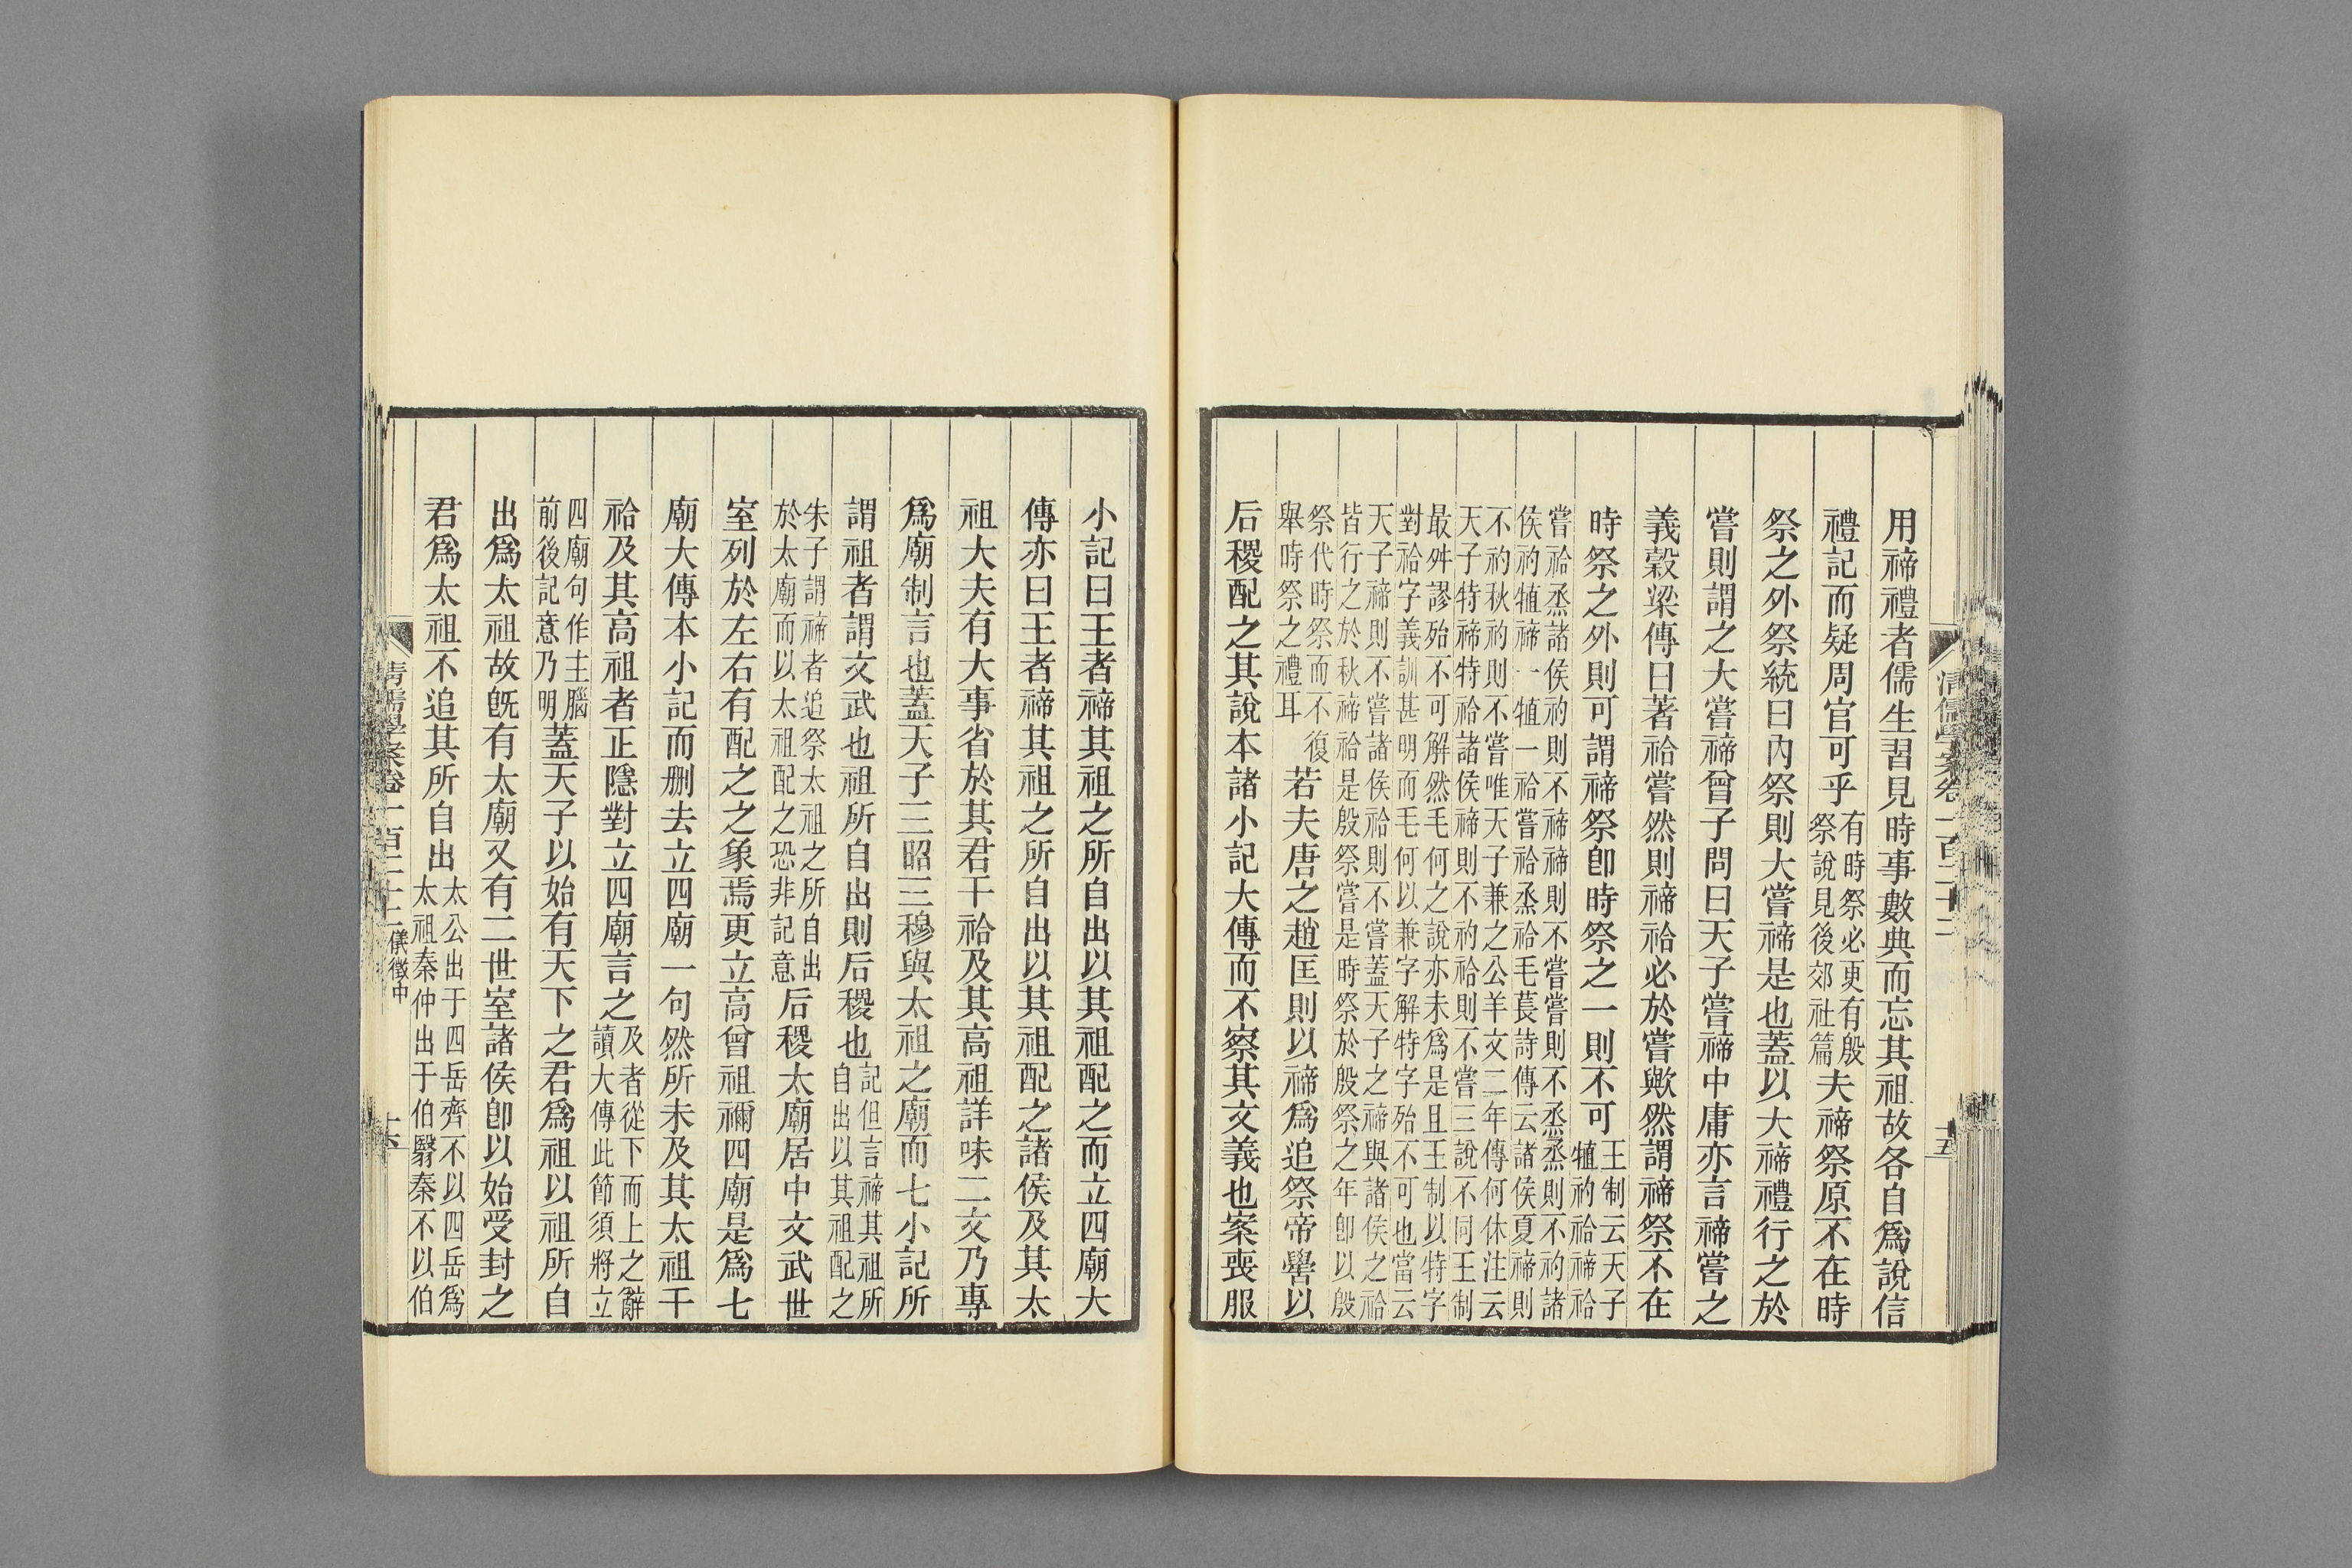 用禘禮者儒生習見時事數典而忘其祖故各自爲說信
禮記而疑周官可乎有時祭必更有殷祭說見後郊社篇夫禘祭原不在時
祭之外祭統曰內祭則大嘗禘是也蓋以大禘禮行之於
嘗則謂之大嘗禘曾子問曰天子嘗禘中庸亦言禘嘗之
義穀梁傳曰著祫嘗然則禘祫必於嘗歟然謂禘祭不在
時祭之外則可謂禘祭卽時祭之一則不可王制云天子犆礿祫禘祫
嘗祫烝諸侯礿則不禘禘則不嘗嘗則不烝烝則不礿諸
侯礿犆禘一犆一祫嘗祫烝祫毛萇詩傳云諸侯夏禘則
不礿秋礿則不嘗唯天子兼之公羊文二年傳何休注云
天子特禘特祫諸侯禘則不礿祫則不嘗三說不同王制
最舛謬殆不可解然毛何之說亦未爲是且王制以特字
對祫字義訓甚明而毛何以兼字解特字殆不可也當云
天子禘則不嘗諸侯祫則不嘗蓋天子之禘與諸侯之祫
皆行之於秋禘祫是殷祭嘗是時祭於殷祭之年卽以殷
祭代時祭而不復舉時祭之禮耳若夫唐之趙匡則以禘爲追祭帝嚳以
后稷配之其說本諸小記大傳而不察其文義也案喪服
清儒學案卷一百二十二
十五
小記曰王者禘其祖之所自出以其祖配之而立四廟大
傳亦曰王者禘其祖之所自出以其祖配之諸侯及其太
祖大夫有大事省於其君干祫及其高祖詳味二文乃專
爲廟制言也蓋天子三昭三穆與太祖之廟而七小記所
謂祖者謂文武也祖所自出則后稷也記但言禘其祖所自出以其祖配之
朱子謂禘者追祭太祖之所自出於太廟而以太祖配之恐非記意后稷太廟居中文武世
室列於左右有配之之象焉更立高曾祖禰四廟是爲七
廟大傳本小記而删去立四廟一句然所未及其太祖干
祫及其高祖者正隱對立四廟言之及者從下而上之辭讀大傳此節須將立
四廟句作主腦前後記意乃明蓋天子以始有天下之君爲祖以祖所自
出爲太祖故既有太廟又有二世室諸侯卽以始受封之
君爲太祖不追其所自出太公出于四岳齊不以四岳爲太祖秦仲出于伯翳秦不以伯
清儒學案卷一百二十二
儀徵中
十六